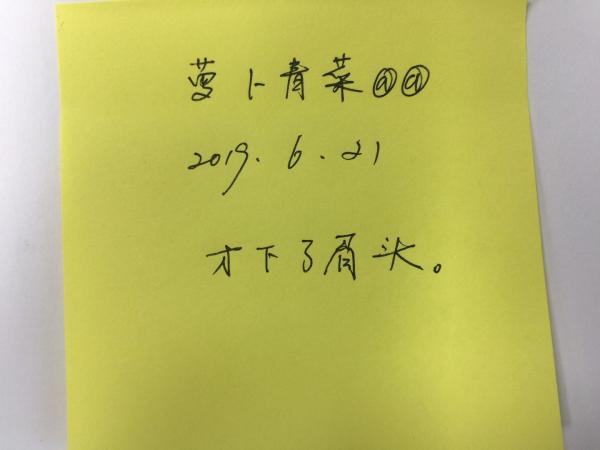 萝卜青菜@@
2019.6.21
才下了眉头。